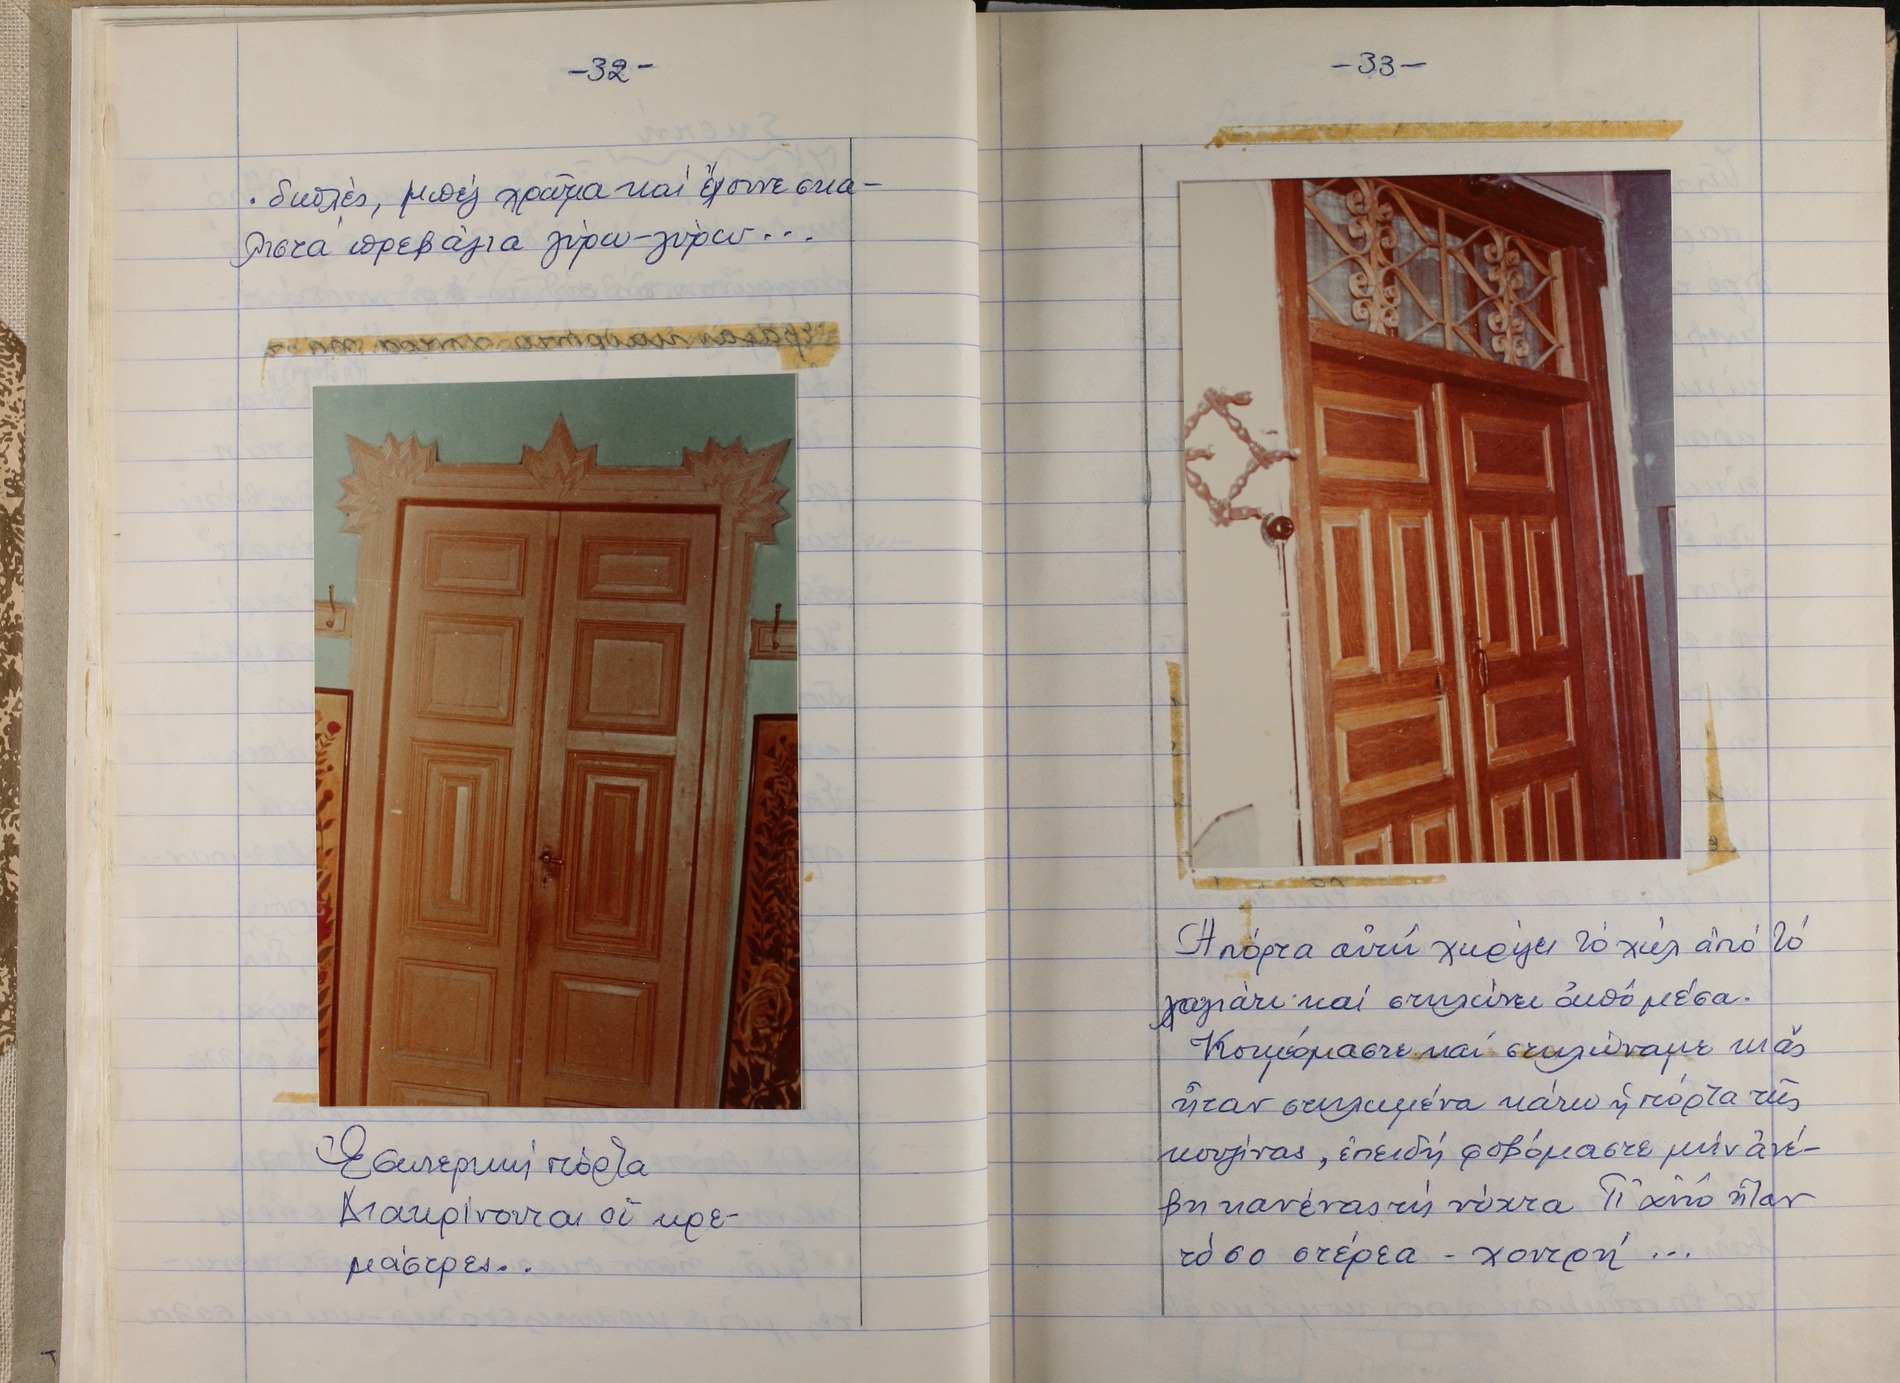 -32-
διπλές, μπέζ χρῶμα καί ἔχουνε σκα-
λιστά πρεβάζια γύρω-γύρω...
Ἐσωτερική πόρτα
Διακρίνονται οἱ κρε-
μάστρες..
-33-
Ἡ πόρτα αὐτή χωρίζει τό χώλ ἀπό τό
χαγιάτι καί στυλώνει ἀπό μέσα.
Κοιμόμαστε καί στυλώναμε κι ἄς
ἦταν στυλωμένα κάτω ἡ πόρτα τῆς
κουζίνας, ἐπειδή φοβόμαστε μήν ἀνέ-
βη κανένας τή νύχτα. Γι' αὐτό ἦταν
τόσο στέρεα - χοντρή ...